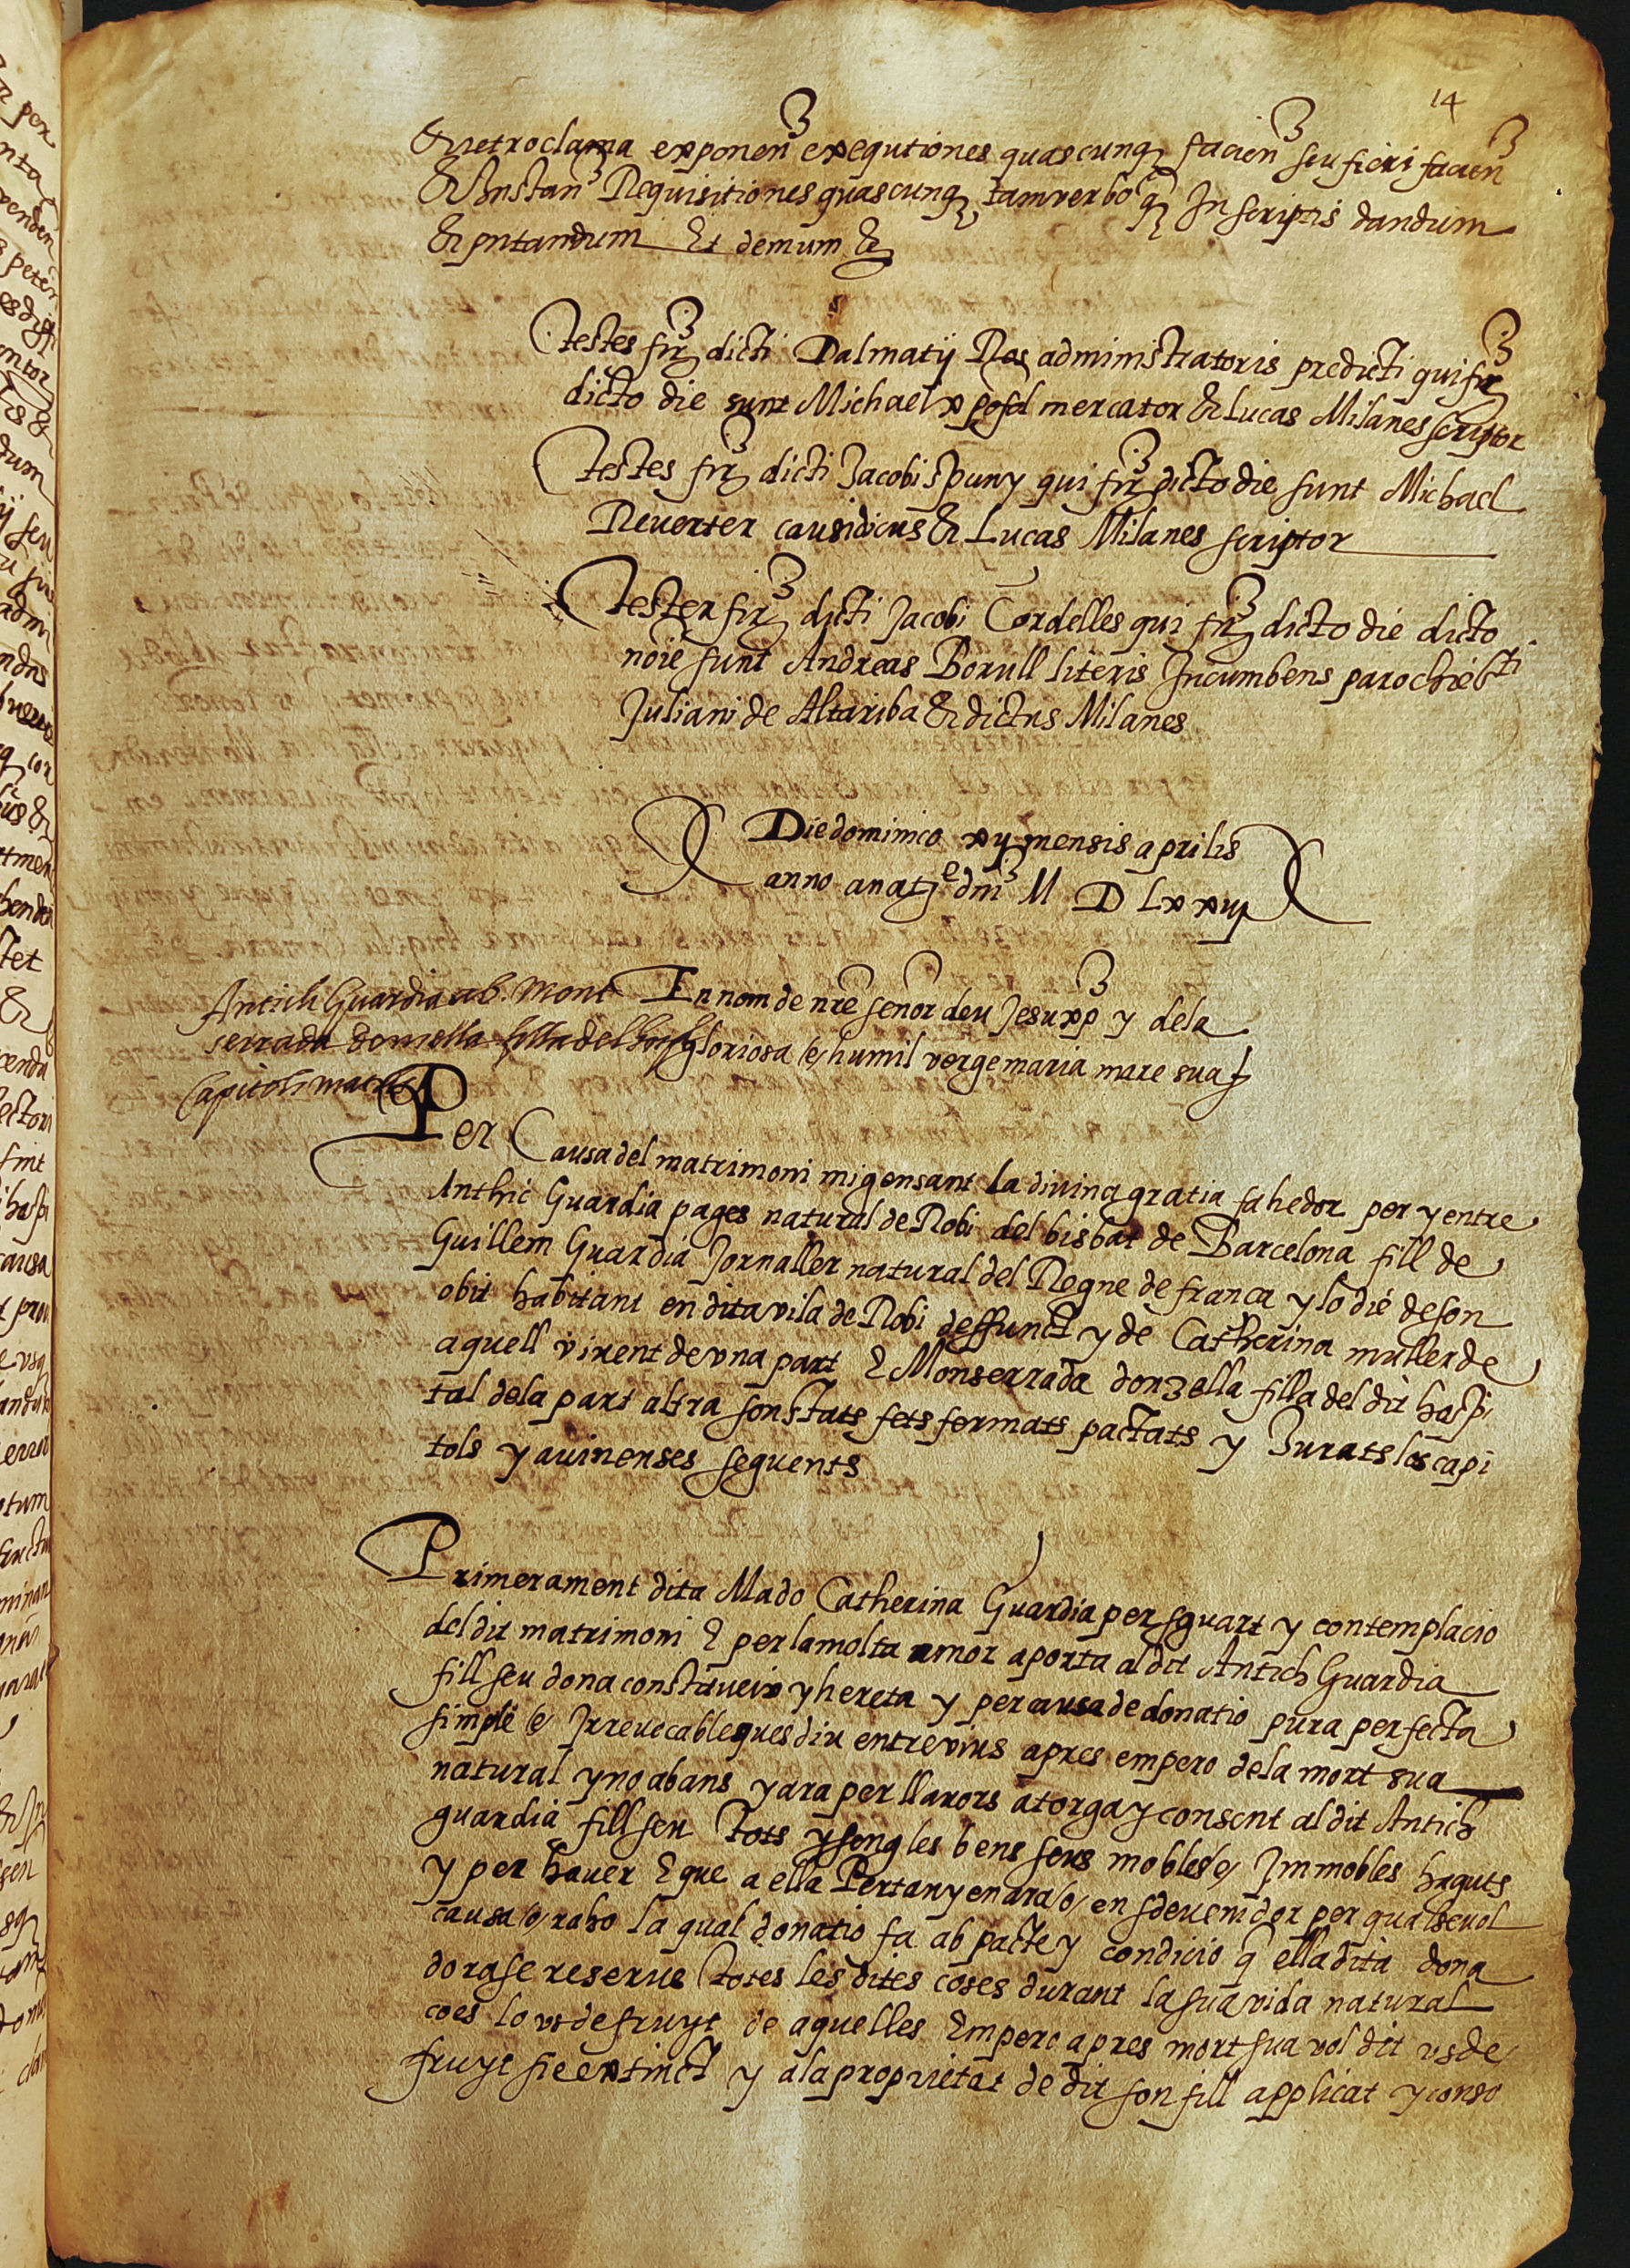 14
& retroclama exponen exequtiones quascunq facien seu fieri facien
& Instan Requisitiones quascunq tam verbo q In scriptis dandum
& pntandum Et demum &
testes fir dicti Dalmatij Ros administratoris predicti qui fir
dicto die sunt Michael mercator & Lucas Milanes scriptor
testes fir dicti Jacobi Spuny qui fir dicto die sunt Michael
Reverter causidicus & Lucas Milanes scriptor
Testes fir dicti Jacobi Cordelles qui fir dicto die dicto
noie sunt Andreas Borull literis Incumbens parochie Sti
Juliani de Altariba & dictus Milanes
Die dominico xij mensis aprilis
anno a nat e dni M D Lxxiij
Antich Guardia ab Mont
serrada donsella filla del hosp
Capitols matri
En nom de nre senor deu Jesu xp y de la
gloriosa e humil verge maria mare sua
Per Causa del matrimoni migensant la divina gratia fahedor per y entre
Anthic Guardia pages natural de Robi del bisbat de Barcelona fill de
Guillem Guardia Jornaller natural del Regne de franca y lo die de son
obit habitant en dita vila de Robi deffunct y de Catherina muller de
aquell vivent de una part E Monserrada donzella filla del dit haspi
tal de la part altra son stats fets formats pactats y Jurats los capi
tols y avinenses seguents
Primerament dita Mado Catherina Guardia per sguart y contemplacio
del dit matrimoni E per la molta amor aporta al dit Antich Guardia
fill seu dona constitueix y hereta y per causa de donatio pura perfecta
simple e Irrevocable ques diu entre vius apres empero de la mort sua
natural y no abans y ara per llavors atorga y consent al dit Antich
guardia fill seu tots y sengles bens seus mobles e Immobles haguts
y per haver E que a ella Pertanyen ara o en sdevenidor per qualsevol
causa o raho la qual donatio fa ab pacte y condicio q ella dita dona
dora se reserve totes les dites coses durant la sua vida natural
coes lo vsdefruyt de aquelles Empero apres mort sua vol dit vsde
fruyt sie extinct y a la proprietat de dit son fill applicat y conso